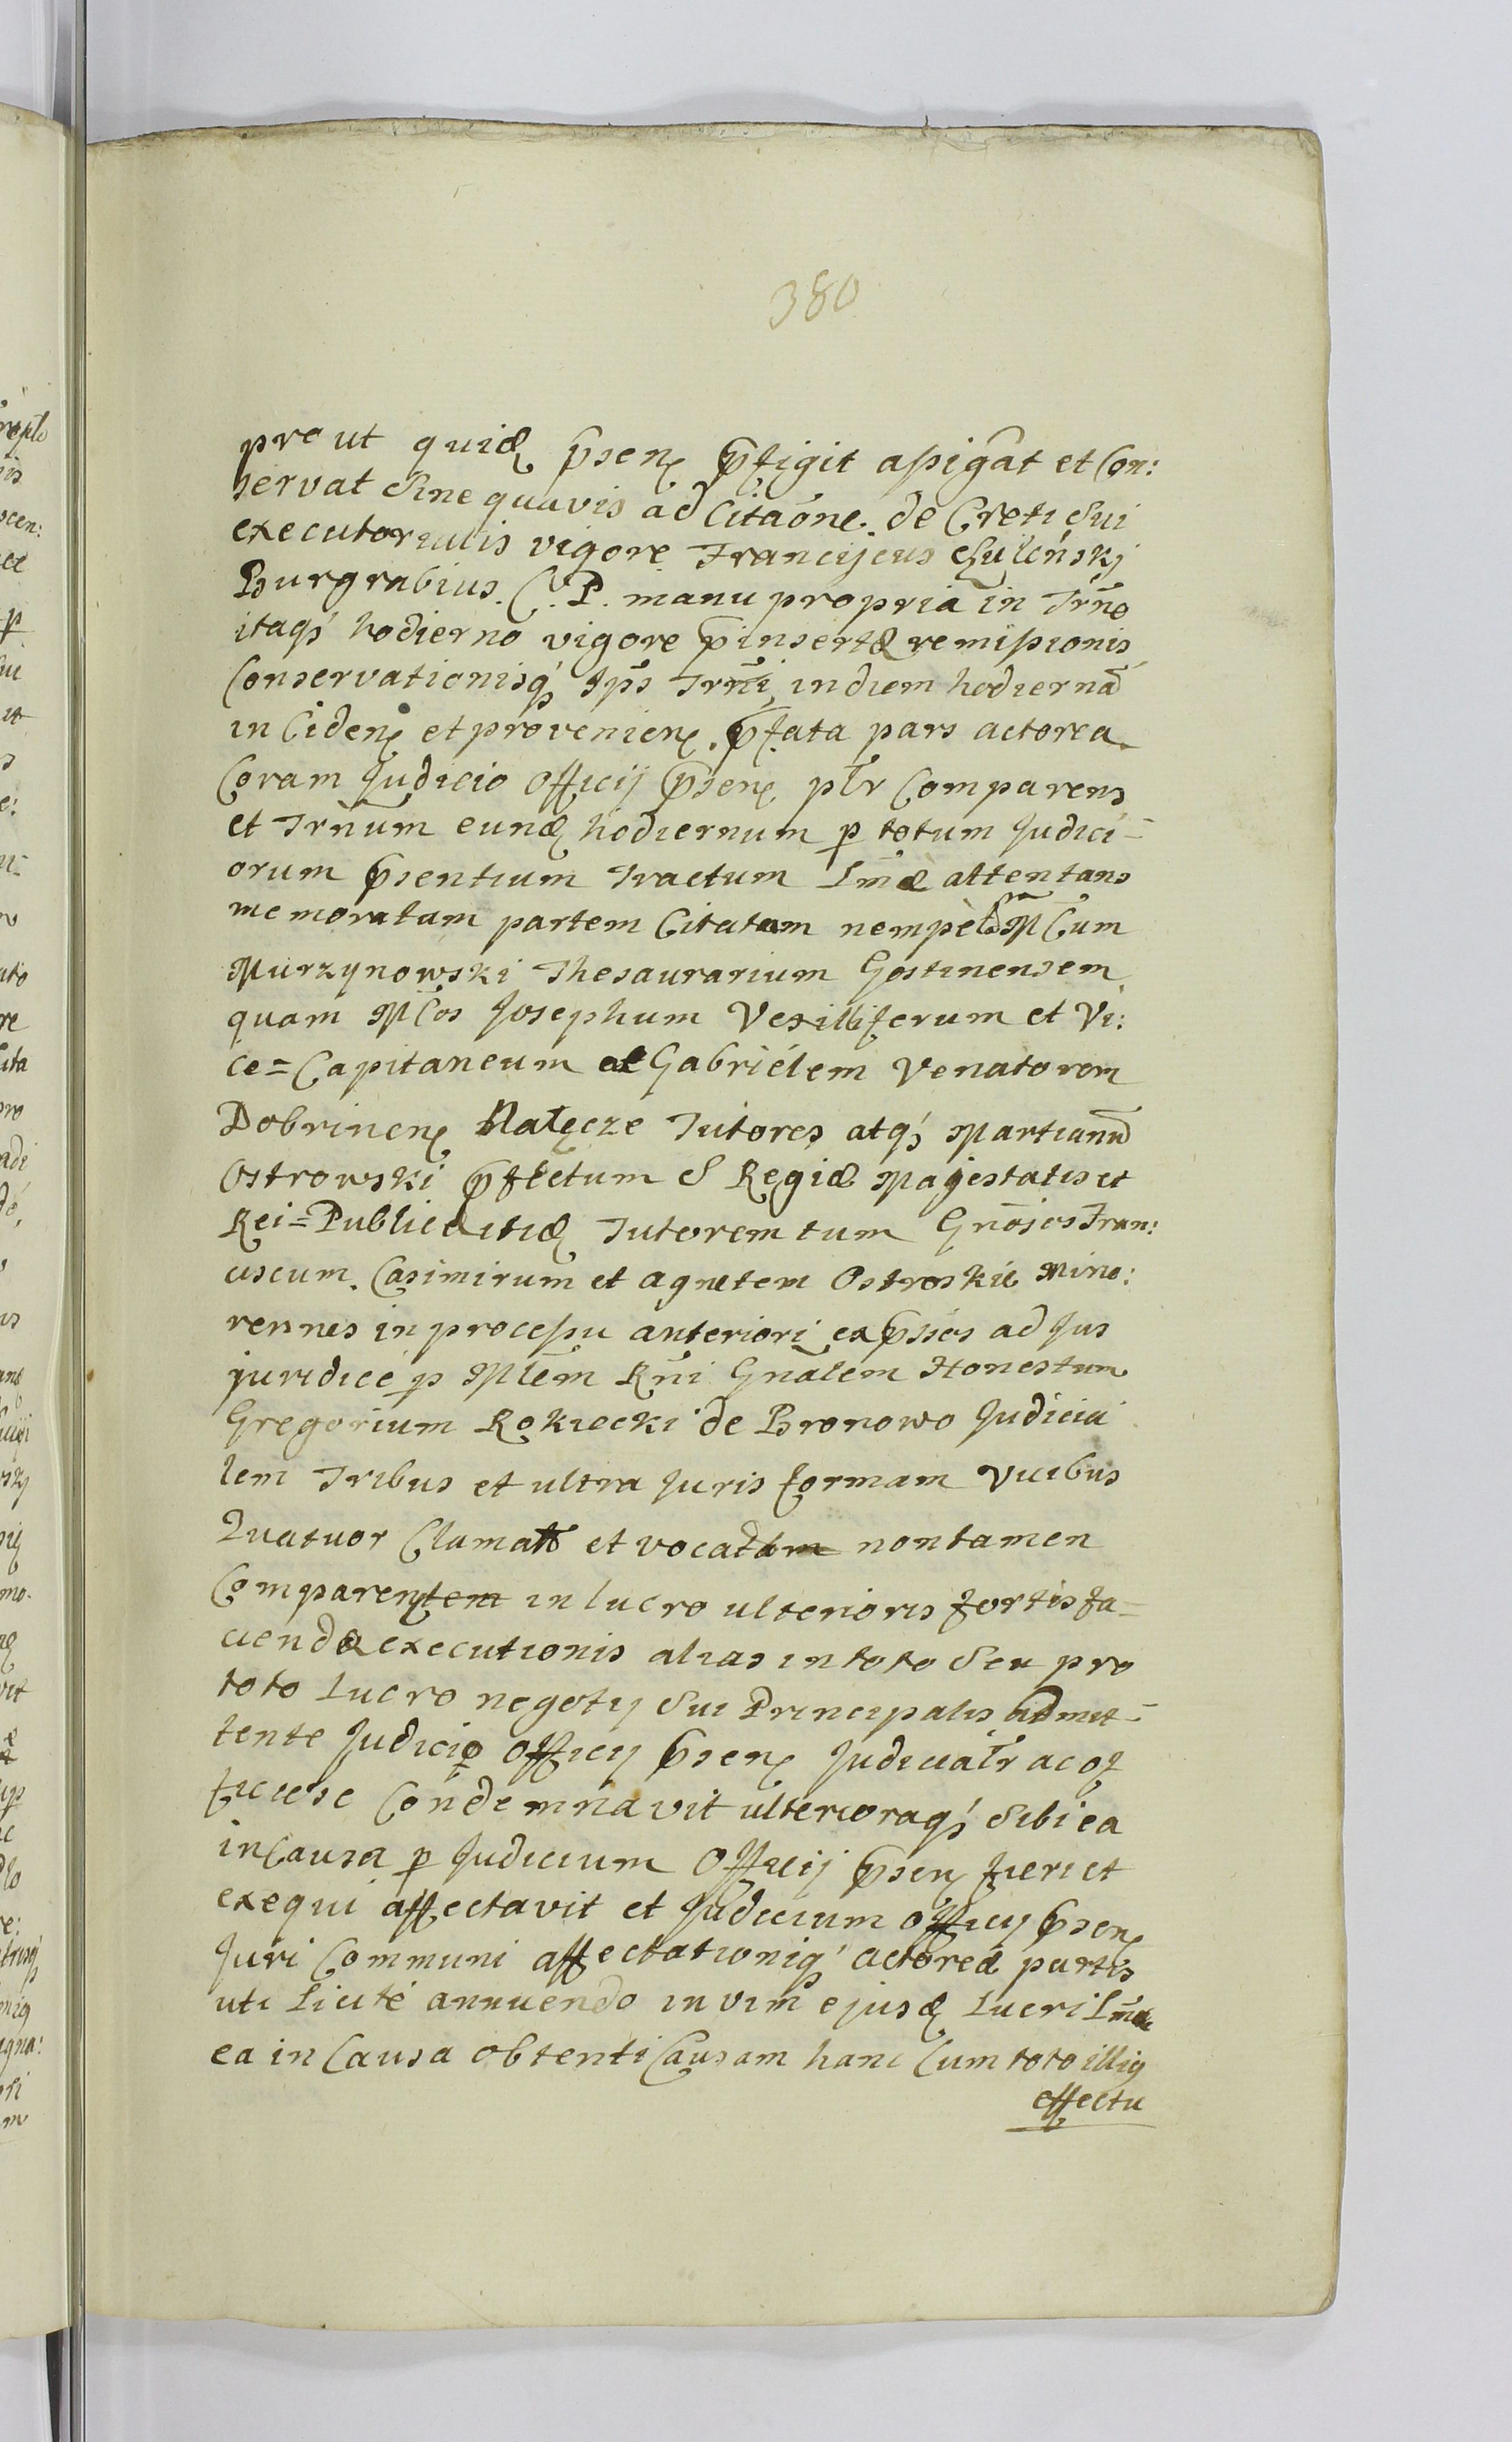 380
prout quidẽ p̃sen̨ p̃figit assigãt et Con:
servat Sine quavis ad Citaõne. de Creti Sui
executorialis vigore Franciscus
Burgrabius. C. P. manu propria in Trño
itaq́ hodierno vigore p̃insertæ remissionis
Conservationisq́ Ips̃ Trñi, in diem hodiernã
in Ciden̨ et provenien̨. p̃fata pars actorea.
Coram Judicio Officij p̃sen̨ pl̃r Comparens
et Trñum eund̨ hodiernum p totum Judici=
orum p̃sentium Tractum Lm̃æ attentans
memoratam partem Citatam nempè M Cum
Murzynowski Thesaurarium Gostinensem
quam MCos Josephum Vexilliferum et Vi:
ce=Capitaneum et Gabriélem Venatorem
Dobrinen̨ Nałęcze Tutores atq́ Martianũ
Ostrowski p̃fectum S Regiæ Majestatis et
Rei=Publicæ itid̨ Tutorem tum Gñosos Fran:
ciscum. Casimirum et Agnetem Ostroskie Mino:
rennes in processu anteriori exp̃sos ad Jus
juridicé p Ml̃em Rñi Gñalem Honestum
Gregorium Rokicki de Bronowo Judicia
lem Tribus et ultra Juris formam Vicibus
Quatuor Clamat et vocat nontamen
Comparen̨ in lucro ulterioris fortis fa=
ciendæ executionis alias in toto Seu pro
toto Lucro negotij Sui Principalis admit=
tente Judicio Officij p̃sen̨ Judicialr̃ ac of
ficiose Condemnavit ulterioraq́ Sibi ea
in Causa p Judicium Officij p̃sen̨ fieri et
exequi affectavit et Judicium officij p̃sen̨
Juri Communi affectationiq́ actoreæ partis
uti Licité annuendo in vim ejusd̨ Lucri Lm̃æ
ea in Causa obtenti Causam hanc Cum toto illiq
effectu